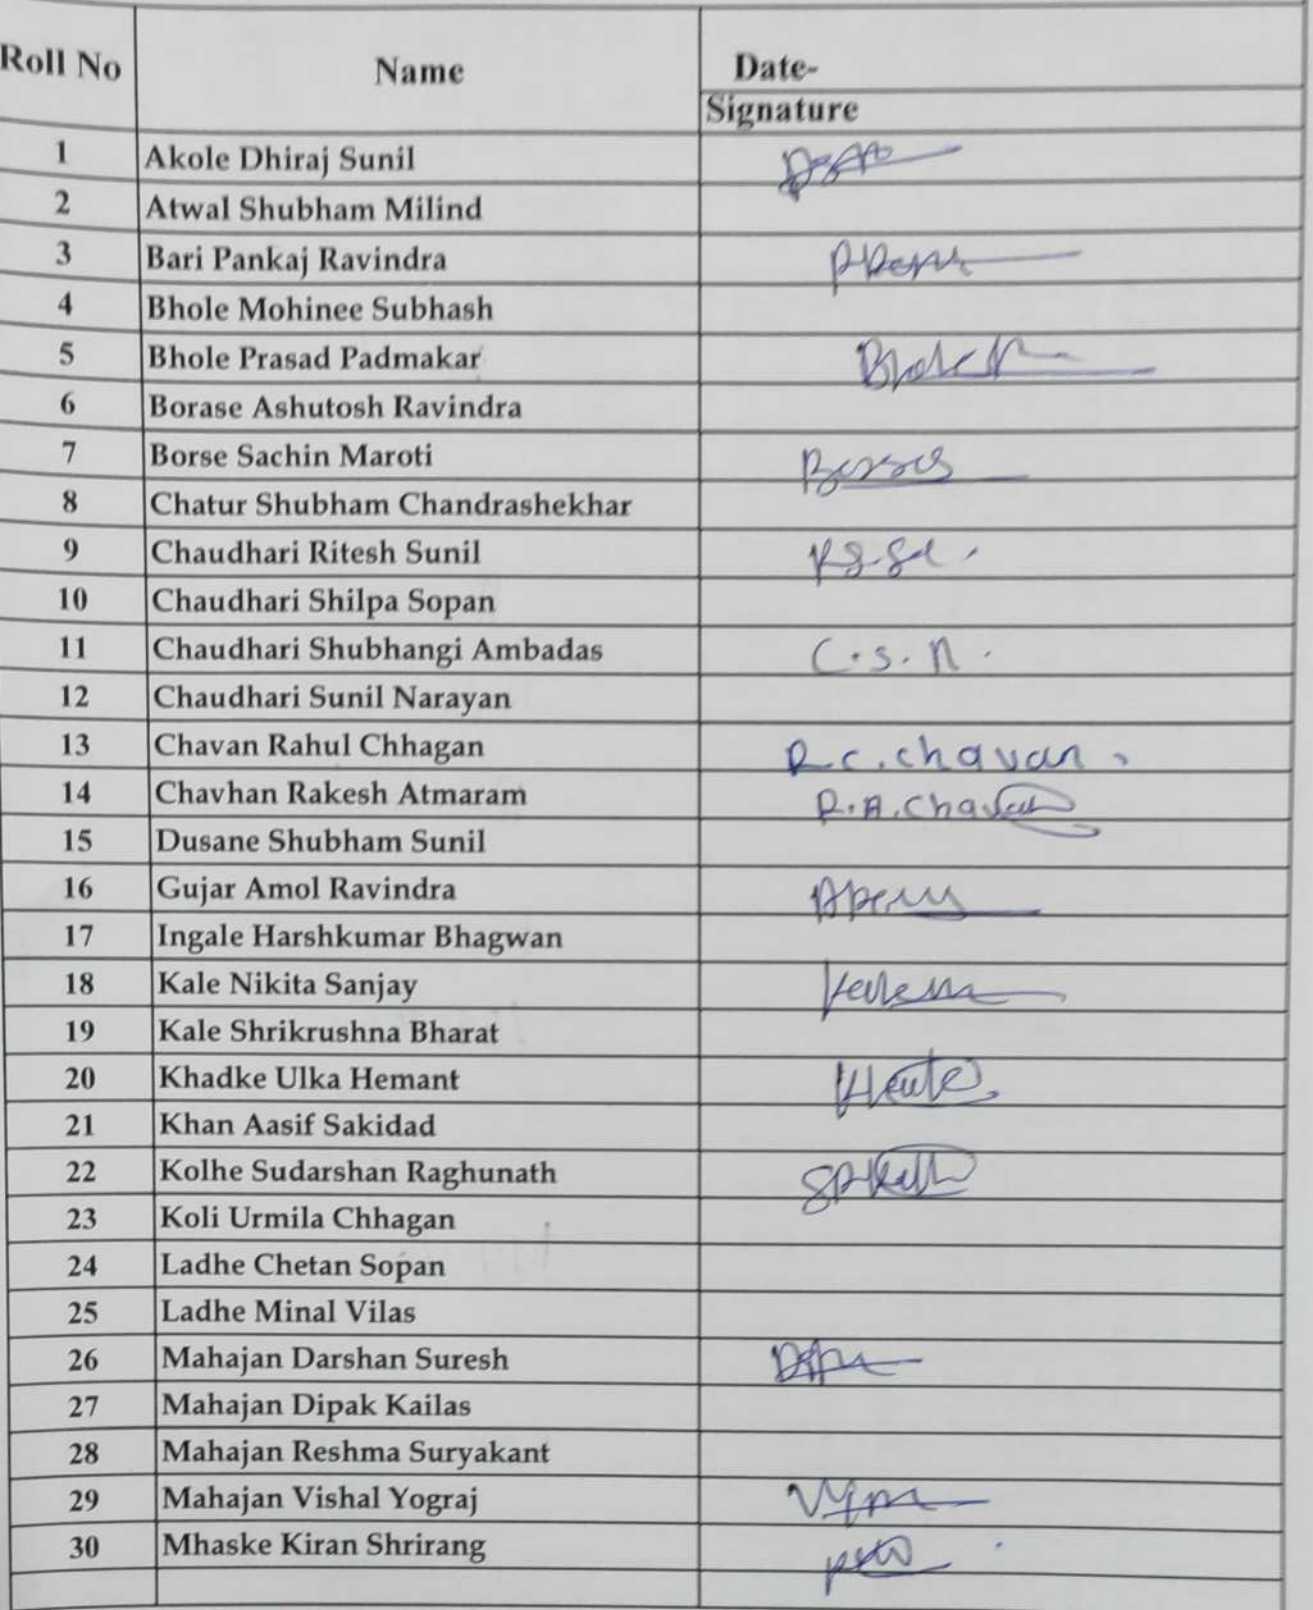 Roll No Name Date-
Signature
1 Akole Dhiraj Sunil
2 Atwal Shubham Milind
3 Bari Pankaj Ravindra
4 Bhole Mohinee Subhash
5 Bhole Prasad Padmakar
6 Borase Ashutosh Ravindra
7 Borse Sachin Maroti
8 Chatur Shubham Chandrashekhar
9 Chaudhari Ritesh Sunil
10 Chaudhari Shilpa Sopan
11 Chaudhari Shubhangi Ambadas C.S.A.
12 Chaudhari Sunil Narayan
13 Chavan Rahul Chhagan R.C.Chavan.
14 Chavhan Rakesh Atmaram R.A.Chavan
15 Dusane Shubham Sunil
16 Gujar Amol Ravindra
17 Ingale Harshkumar Bhagwan
18 Kale Nikita Sanjay
19 Kale Shrikrushna Bharat
20 Khadke Ulka Hemant
21 Khan Aasif Sakidad
22 Kolhe Sudarshan Raghunath
23 Koli Urmila Chhagan
24 Ladhe Chetan Sopan
25 Ladhe Minal Vilas
26 Mahajan Darshan Suresh
27 Mahajan Dipak Kailas
28 Mahajan Reshma Suryakant
29 Mahajan Vishal Yograj
30 Mhaske Kiran Shrirang